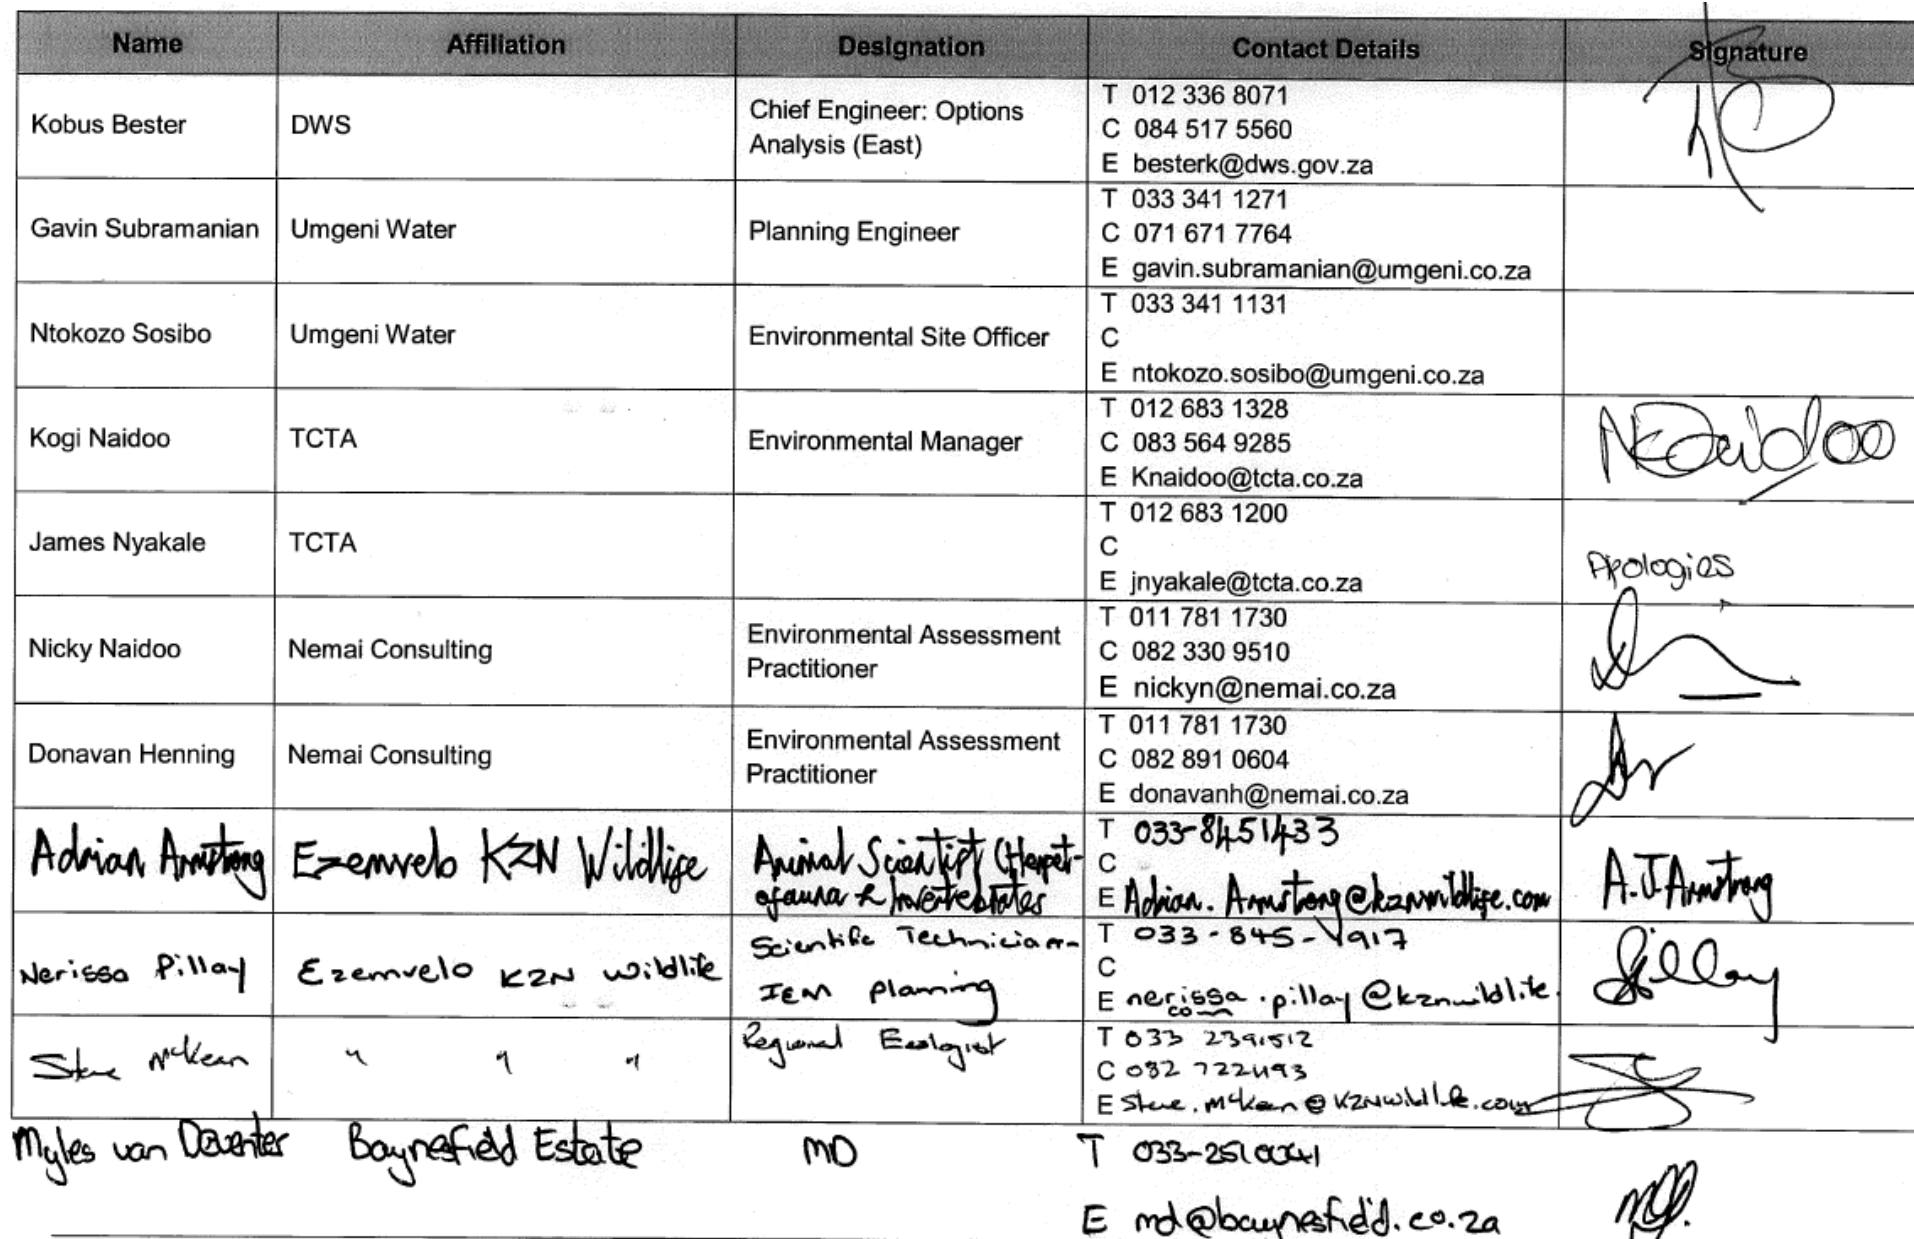 Name Affiliation Designation Contact Details Signature
Kobus Bester DWS Chief Engineer: Options Analysis (East)
T 012 336 8071
C 084 517 5560
E besterk@dws.gov.za
Gavin Subramanian Umgeni Water Planning Engineer
T 033 341 1271
C 071 671 7764
E gavin.subramanian@umgeni.co.za
Ntokozo Sosibo Umgeni Water Environmental Site Officer
T 033 341 1131
C
E ntokozo.sosibo@umgeni.co.za
Kogi Naidoo TCTA Environmental Manager
T 012 683 1328
C 083 564 9285
E Knaidoo@tcta.co.za
NKNaidoo
James Nyakale TCTA
T 012 683 1200
C
E jnyakale@tcta.co.za
Apologies
Nicky Naidoo Nemai Consulting Environmental Assessment Practitioner
T 011 781 1730
C 082 330 9510
E nickyn@nemai.co.za
Donavan Henning Nemai Consulting Environmental Assessment Practitioner
T 011 781 1730
C 082 891 0604
E donavanh@nemai.co.za
Adrian Armstrong Ezemvelo KZN Wildlife Animal Scientist (Herpet-
ofauna & Invertebrates
T 033-8451433
C
E Adrian.Armstrong@kznwildlife.com
A.J Armstrong
Nerissa Pillay Ezemvelo KZN Wildlife Scientific Technician-
IEM Planning
T 033-845-1917
C
E nerissa.pillay@kznwildlife.
com
Pillay
Steve McKean " " " Regional Ecologist
T 033 2391512
C
E Steve.McKean@KZNwildlife.com
Myles van Deventer Baynesfield Estate MD
T 033-2510041
E md@baynesfield.co.za